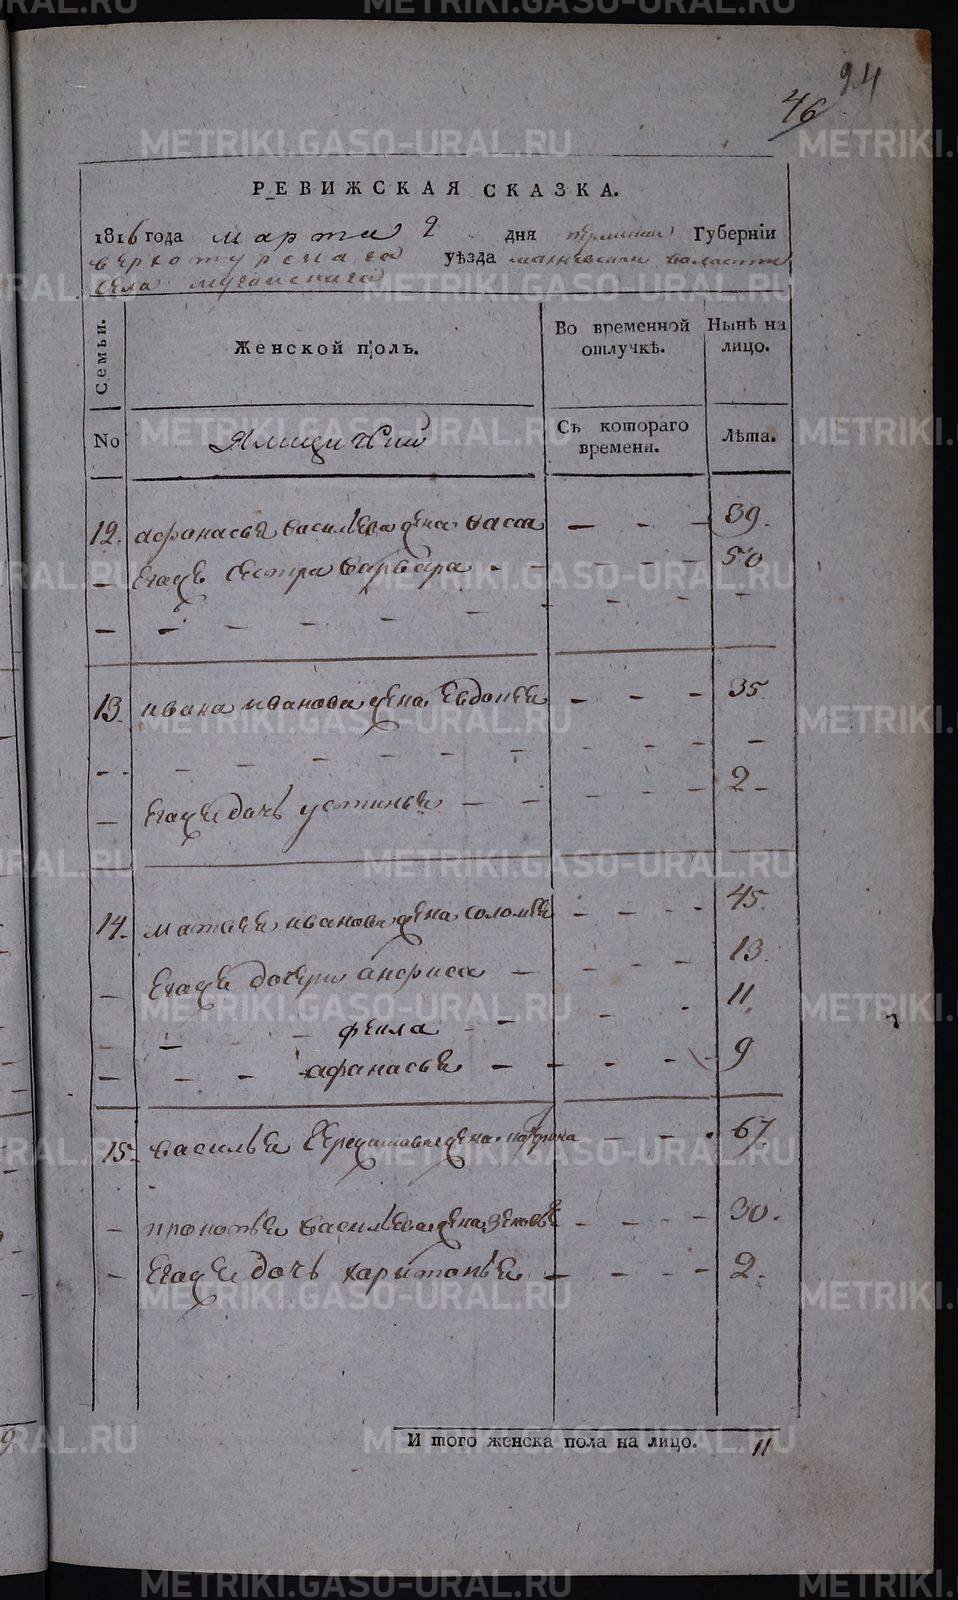 94
46
РЕВИЖСКАЯ СКАЗКА.
1816 года марта 9 дня пермской Губернїи
верхотурскаго уѣзда махневской валости
села мугайскаго
Семьи. Женской полъ. Во временной отлучкѣ. Нынѣ на лицо.
No Ямщички Съ котораго времени. Лѣта.
12. афонасья васильева жена васа — - - 39.
— Егаже сестра варвара - - - - - 50
— — — — — — — — — —
13. ивана иванова жена Евдокея — - - 35
- - - - - - - - - - -
— Егаже дочь устинья — - - - - 2 -
14. матвея иванова жена соломея - - - 45.
— Егаже дочери анфиса — - - - 13.
— — фекла - - - - - 11.
— — — афанасья — - - - 9
15. василья жена матрона - - - 67.
— прокопья васильева жена зеновья - - - 30.
— Егаже дочь харитонья — - - - 2.
И того женска пола на лицо. 11
METRIKI.GASO-URAL.RU